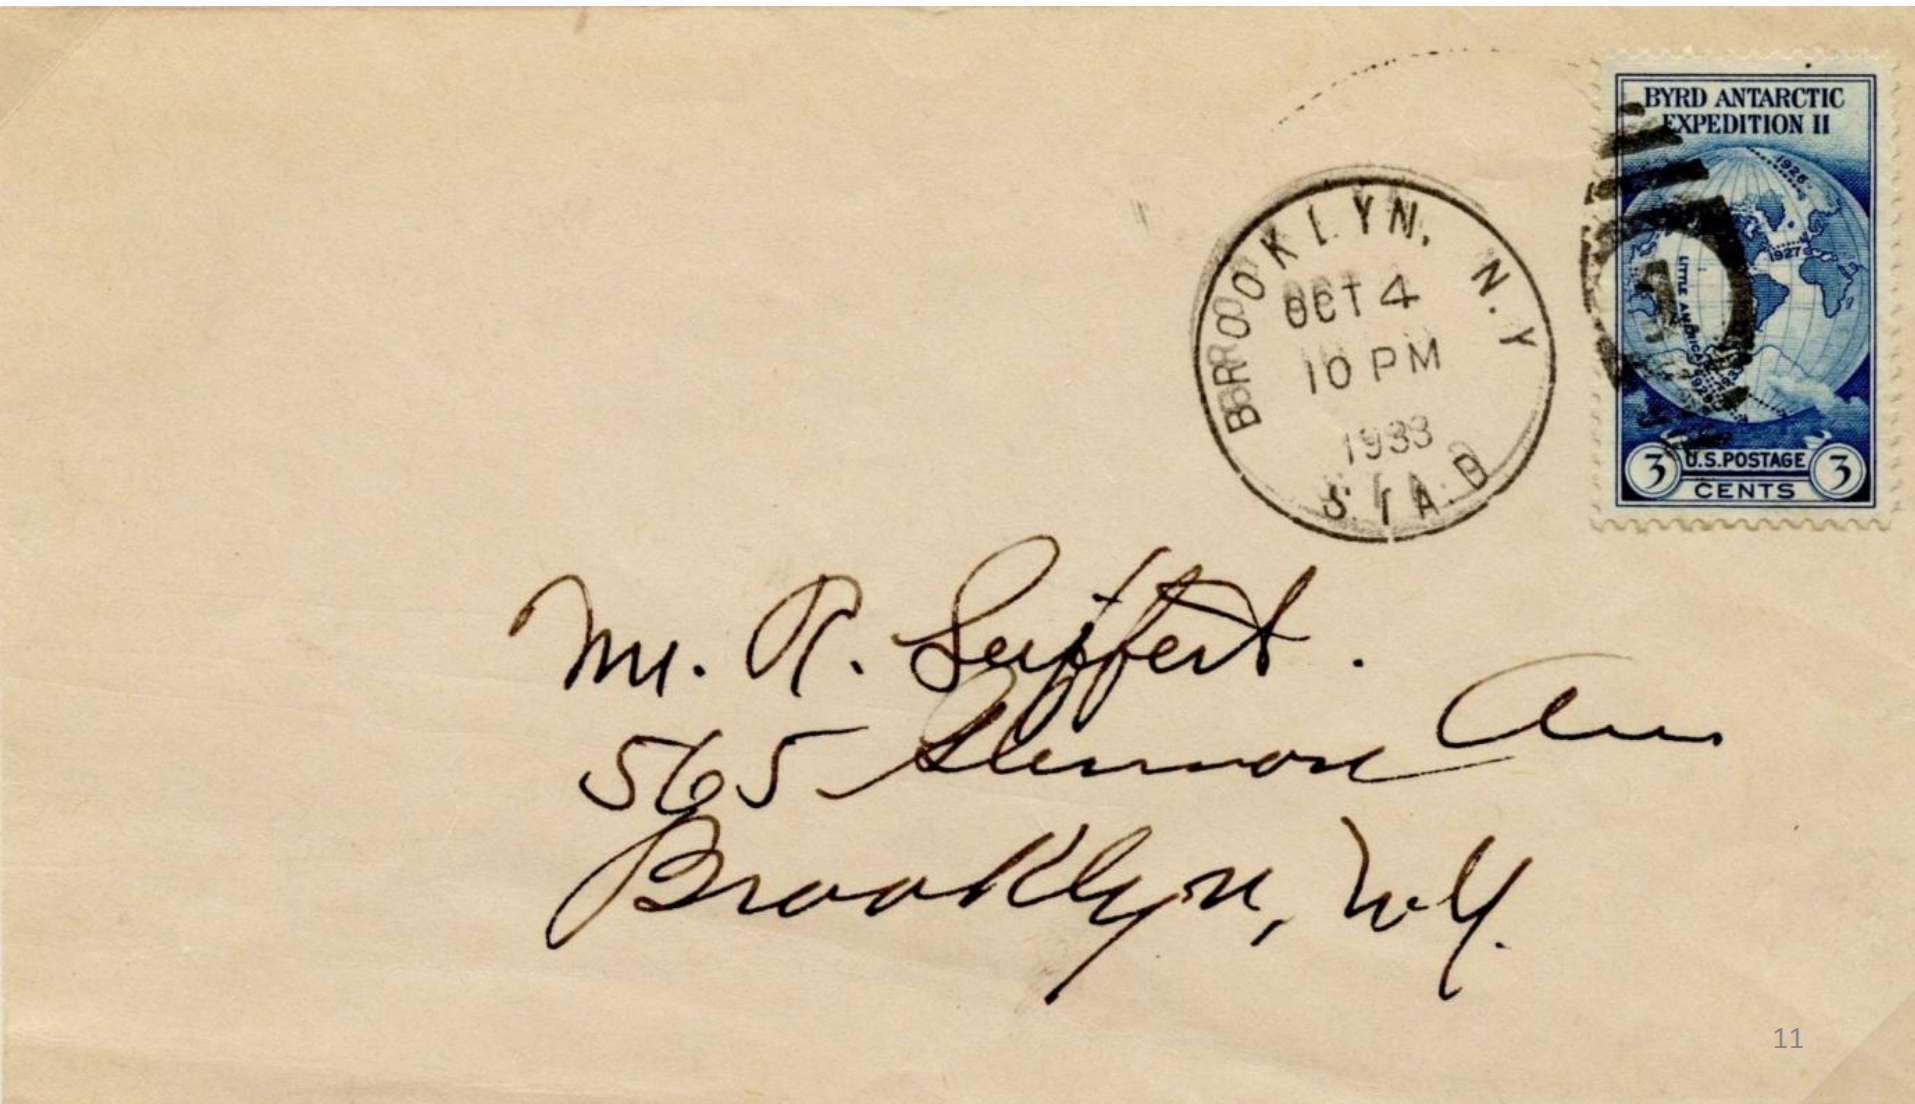 BYRD ANTARCTIC
EXPEDITION II
1926
1927
LITTLE AMERICA
1929
3 U.S. POSTAGE 3
CENTS
BROOKLYN, N.Y
OCT 4
10 PM
1933
STA. D
Mr. R. Seiffert.
565 Glenmore Ave.
Brooklyn, N.Y.
11